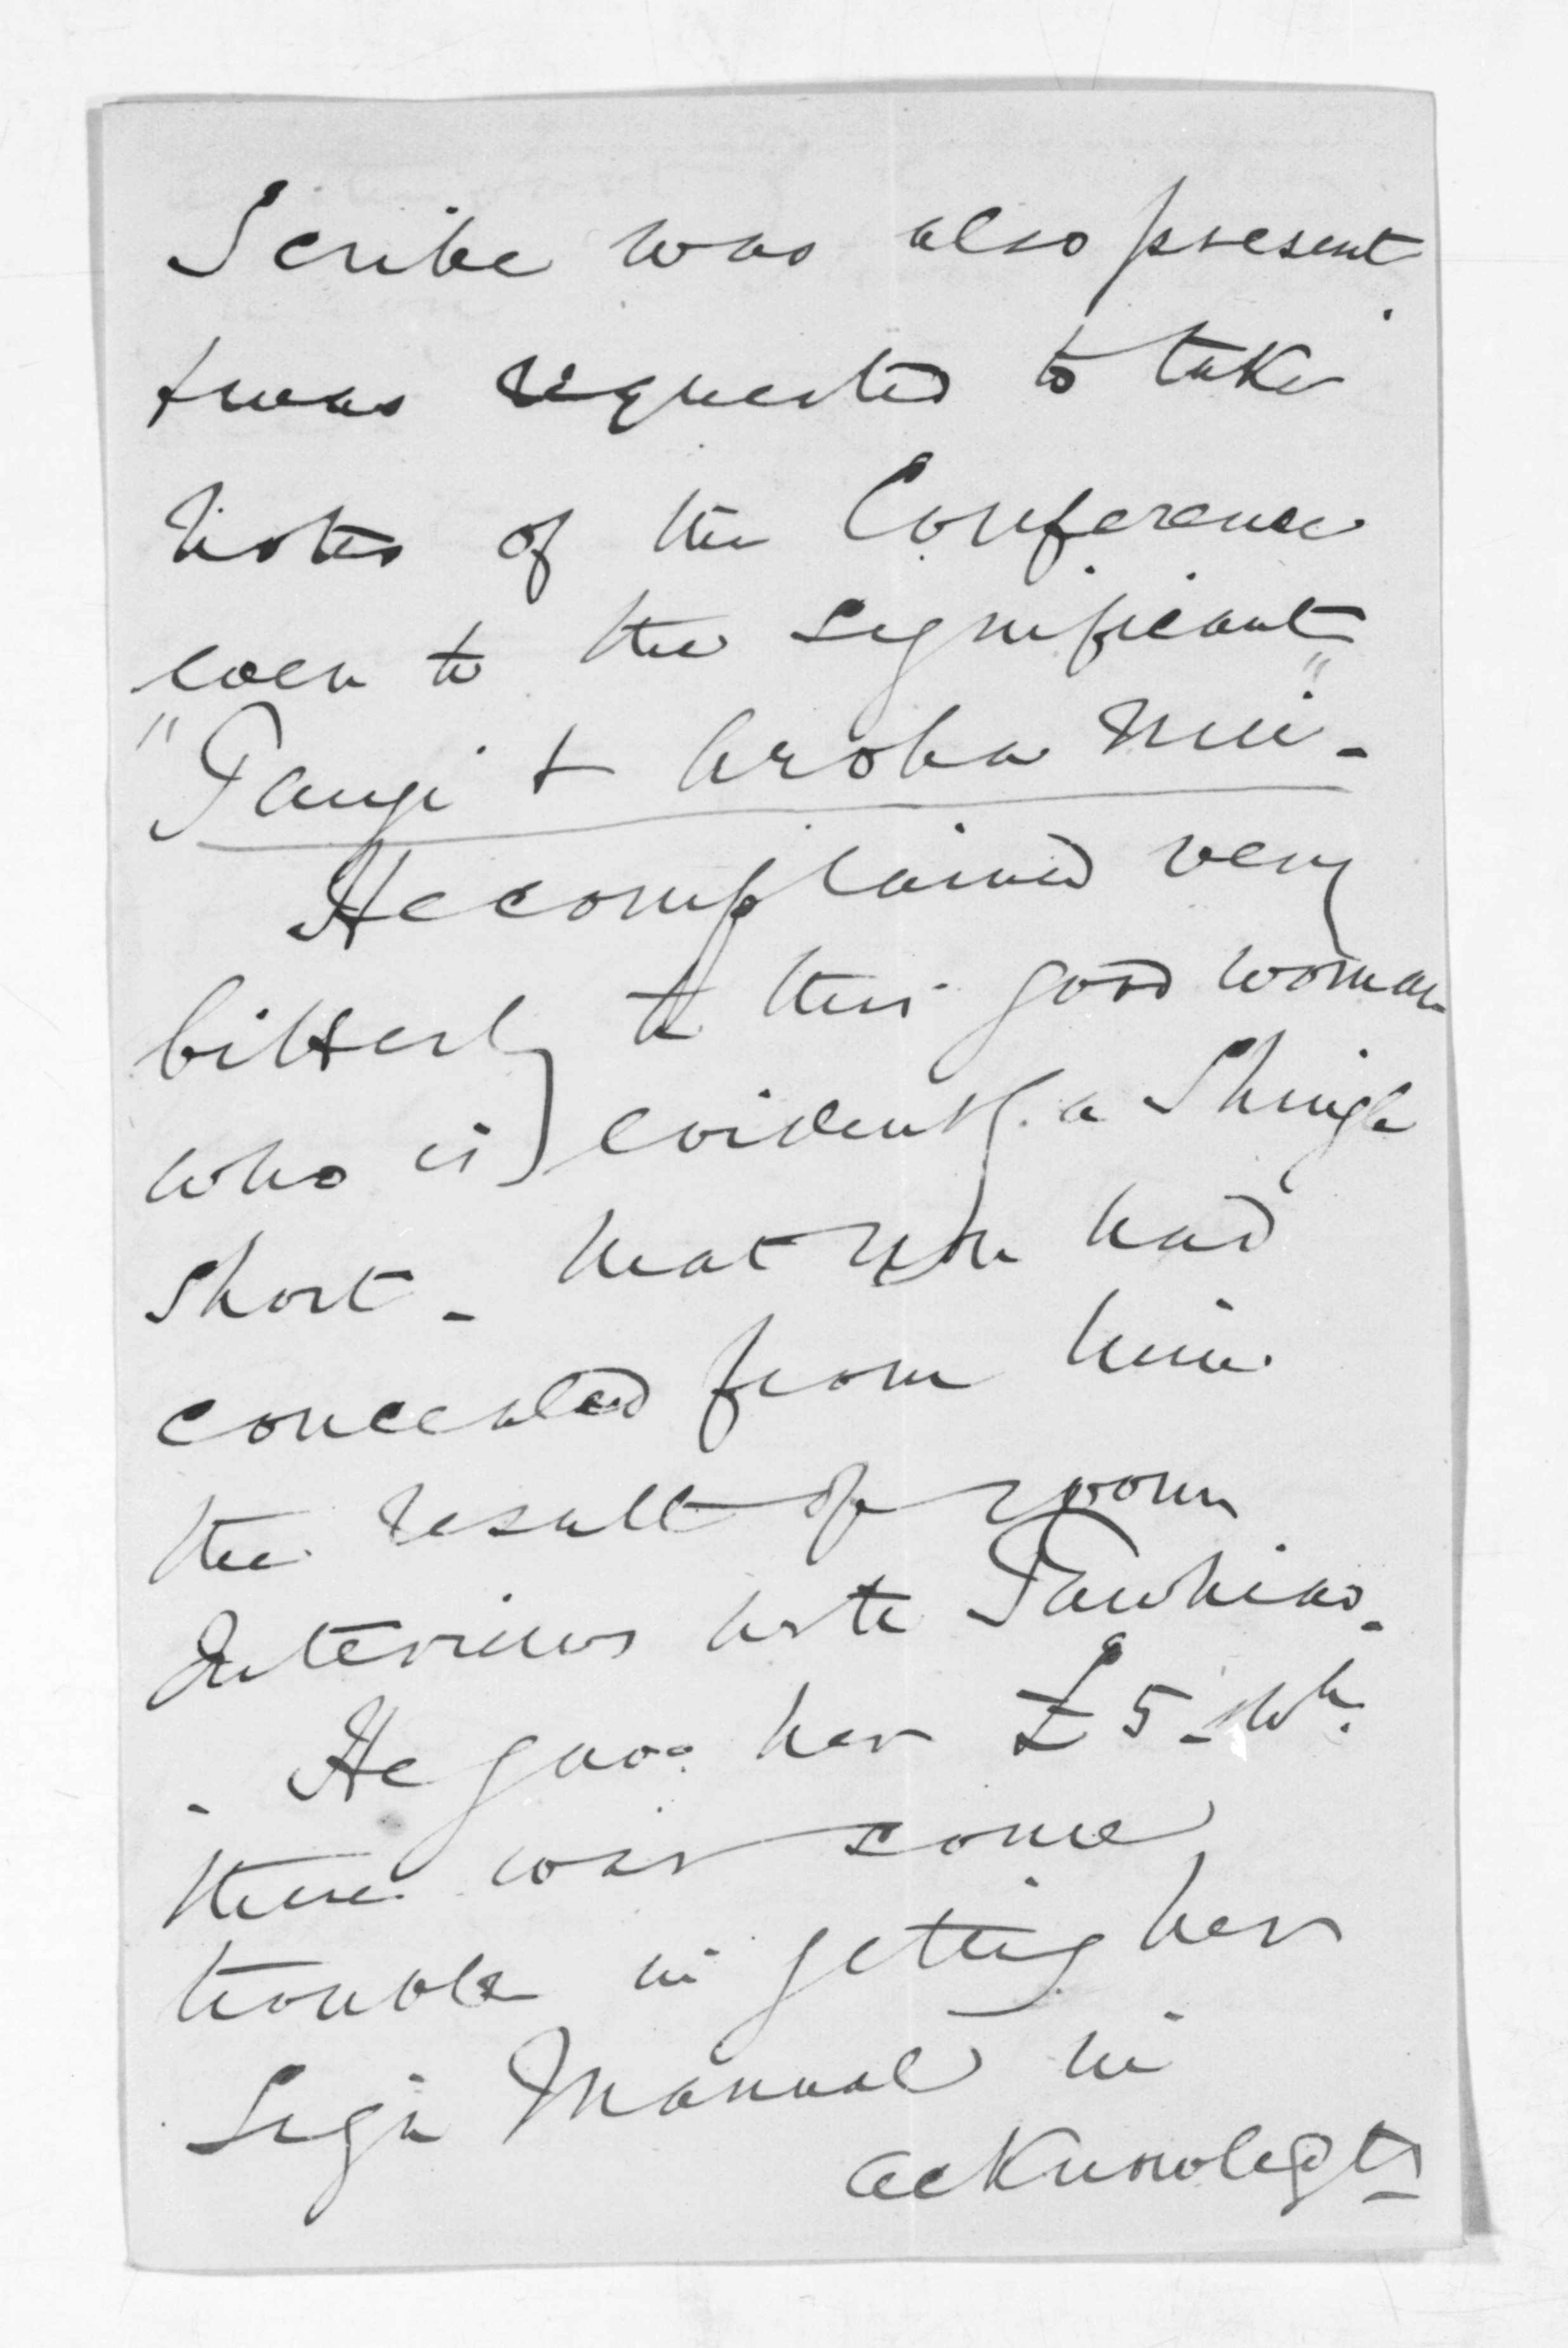 Scribe was also present
& was requested to take
notes of the Conference
even to the significant
"Tangi & Aroha Nui" -
He complained very
bitterly to this good woman
who is evidently a Shingle
Short - that you had
concealed from him
the result of your
Interviews with Tawhiao.
- He gave her £5 - wh.
there was some
trouble in getting her
Sign Manual in
acknowledgt